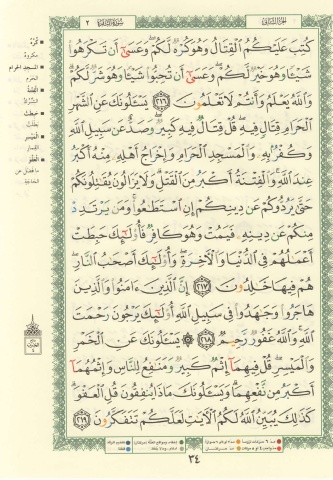 الجزء الثاني
سورة البقرة ٢
كُتِبَ عَلَيْكُمُ ٱلْقِتَالُ وَهُوَ كُرْهٌ لَّكُمْ وَعَسَىٰٓ أَن تَكْرَهُوا۟
شَيْـًٔا وَهُوَ خَيْرٌ لَّكُمْ وَعَسَىٰٓ أَن تُحِبُّوا۟ شَيْـًٔا وَهُوَ شَرٌّ لَّكُمْ
وَٱللَّهُ يَعْلَمُ وَأَنتُمْ لَا تَعْلَمُونَ ٢١٦ يَسْـَٔلُونَكَ عَنِ ٱلشَّهْرِ
ٱلْحَرَامِ قِتَالٍ فِيهِ قُلْ قِتَالٌ فِيهِ كَبِيرٌ وَصَدٌّ عَن سَبِيلِ ٱللَّهِ
وَكُفْرٌۢ بِهِۦ وَٱلْمَسْجِدِ ٱلْحَرَامِ وَإِخْرَاجُ أَهْلِهِۦ مِنْهُ أَكْبَرُ
عِندَ ٱللَّهِ وَٱلْفِتْنَةُ أَكْبَرُ مِنَ ٱلْقَتْلِ وَلَا يَزَالُونَ يُقَٰتِلُونَكُمْ
حَتَّىٰ يَرُدُّوكُمْ عَن دِينِكُمْ إِنِ ٱسْتَطَٰعُوا۟ وَمَن يَرْتَدِدْ
مِنكُمْ عَن دِينِهِۦ فَيَمُتْ وَهُوَ كَافِرٌ فَأُو۟لَٰٓئِكَ حَبِطَتْ
أَعْمَٰلُهُمْ فِى ٱلدُّنْيَا وَٱلْـَٔاخِرَةِ وَأُو۟لَٰٓئِكَ أَصْحَٰبُ ٱلنَّارِ
هُمْ فِيهَا خَٰلِدُونَ ٢١٧ إِنَّ ٱلَّذِينَ ءَامَنُوا۟ وَٱلَّذِينَ
هَاجَرُوا۟ وَجَٰهَدُوا۟ فِى سَبِيلِ ٱللَّهِ أُو۟لَٰٓئِكَ يَرْجُونَ رَحْمَتَ
ٱللَّهِ وَٱللَّهُ غَفُورٌ رَّحِيمٌ ٢١٨ يَسْـَٔلُونَكَ عَنِ ٱلْخَمْرِ
وَٱلْمَيْسِرِ قُلْ فِيهِمَآ إِثْمٌ كَبِيرٌ وَمَنَٰفِعُ لِلنَّاسِ وَإِثْمُهُمَآ
أَكْبَرُ مِن نَّفْعِهِمَا وَيَسْـَٔلُونَكَ مَاذَا يُنفِقُونَ قُلِ ٱلْعَفْوَ
كَذَٰلِكَ يُبَيِّنُ ٱللَّهُ لَكُمُ ٱلْـَٔايَٰتِ لَعَلَّكُمْ تَتَفَكَّرُونَ ٢١٩
٣٤